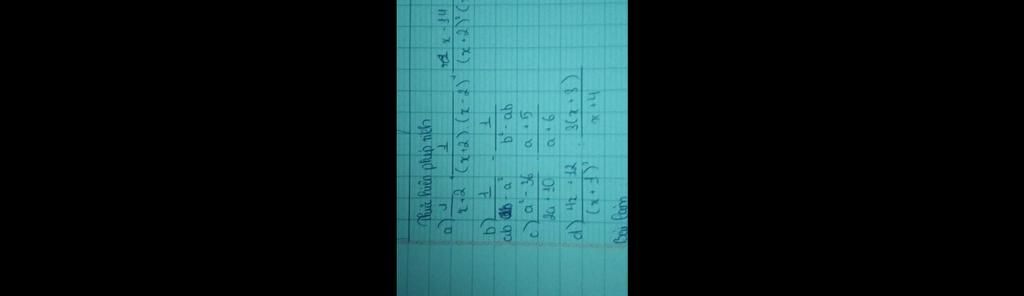 Thực hiện phép tính
a) 1/(x+2) + 1/((x+2).(x-2)) + x-14/((x+2)²(x-
b) 1/(ab-a²) - 1/(b²-ab)
c) (a²-36)/(2a+10) . (a+5)/(a+6)
d) (4x+12)/(x+1)² : 3(x+3)/(x+4)
Bài làm